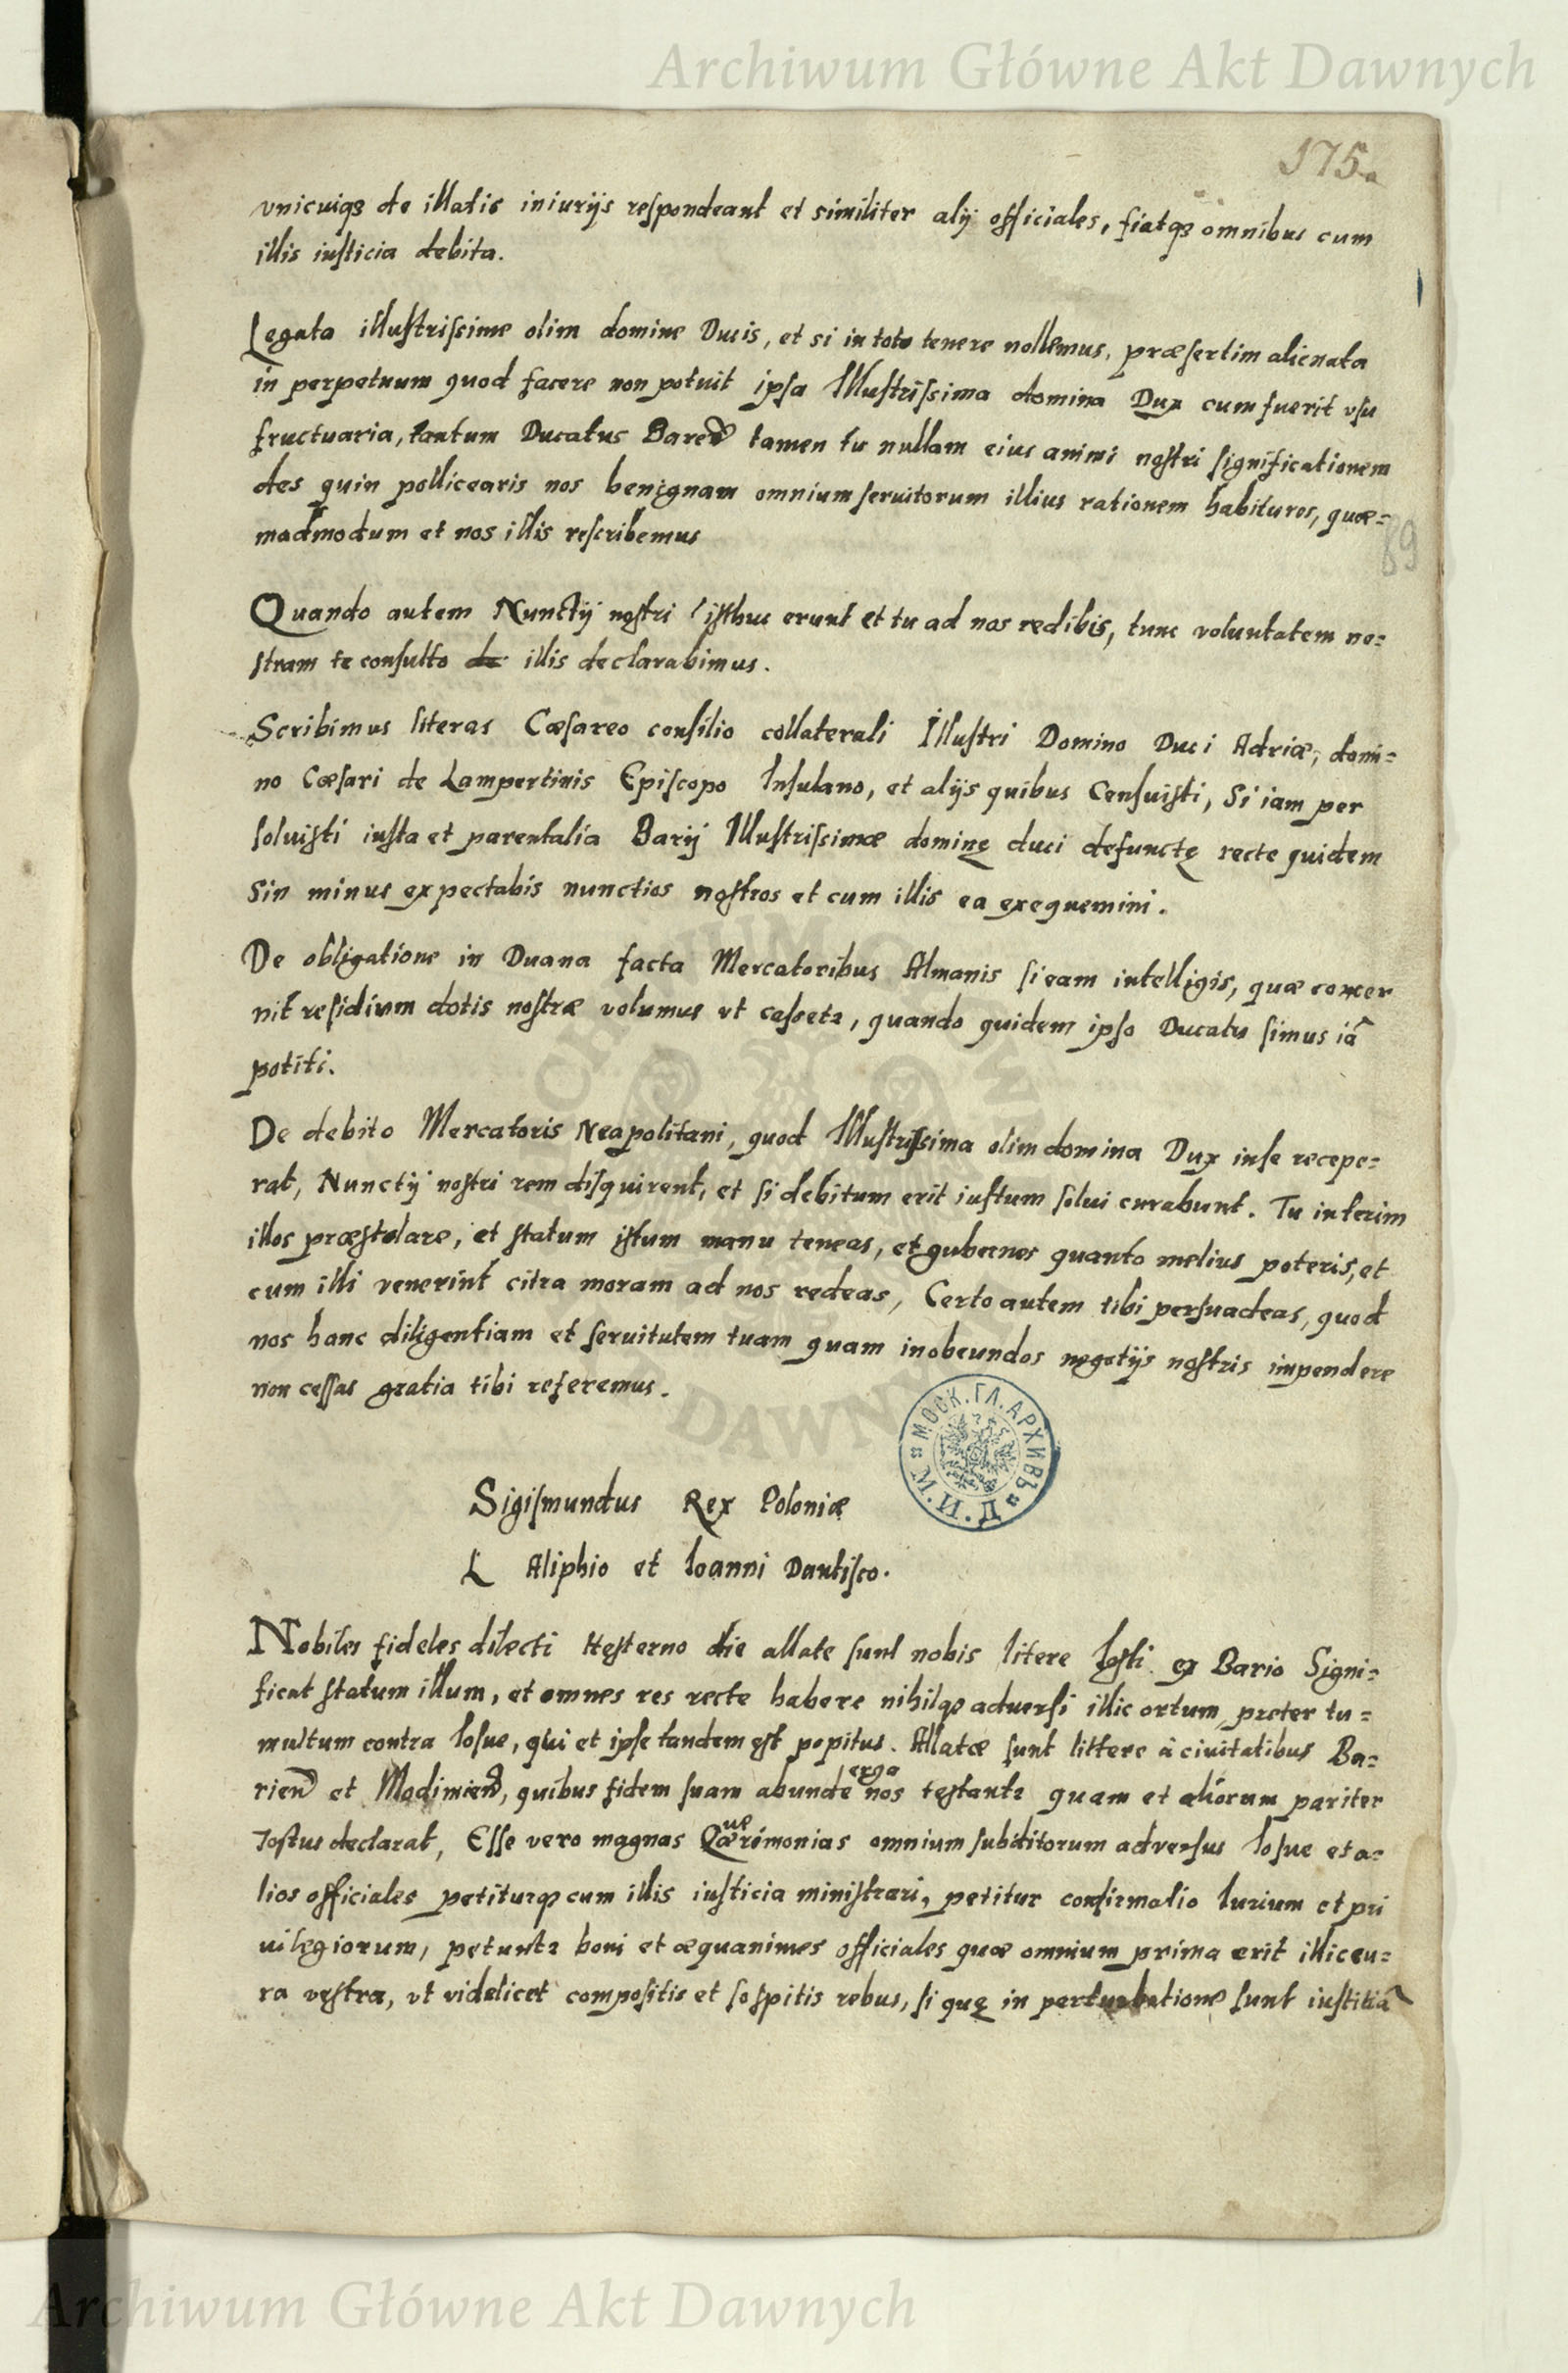 Archiwum Główne Akt Dawnych
175a
vnicuiqȝ de illatis iniurijs respondeant et similiter alij officiales, fiatqȝ omnibus cum
illis iusticia debita.
Legata illustrissime olim domine Ducis, et si in toto tenere nollemus, præsertim alienata
in perpetuum quod facere non potuit ipsa Illustrissima domina Dux cum fuerit vsu
fructuaria, tantum Ducatus Baren̄ tamen tu nullam eius animi nostri significationem
des quin pollicearis nos benignam omnium seruitorum illius rationem habituros, quæ=
madmodum et nos illis rescribemus
89
Quando autem Nunctij nostri isthuc erunt et tu ad nos redibis, tunc voluntatem no=
stram te consulto de illis declarabimus.
Scribimus literas Cæsareo consilio collaterali Illustri Domino Duci Adriæ, domi=
no Cæsari de Lampertinis Episcopo Insulano, et alijs quibus Censuisti, Si iam per
soluisti iusta et parentalia Barij Illustrissimæ dominę duci defunctę recte quidem
Sin minus expectabis nunctios nostros et cum illis ea exequemini.
De obligatione in Duana facta Mercatoribus Almanis si eam intelligis, quæ concer
nit residium dotis nostræ volumus vt cassetr, quando quidem ipso Ducatu simus iā
potiti.
De debito Mercatoris Neapolitani, quod Illustrissima olim domina Dux in se recepe=
rat, Nunctij nostri rem disquirent, et si debitum erit iustum solui curabunt. Tu interim
illos præstolare, et statum istum manu teneas, et gubernes quanto melius poteris, et
cum illi venerint citra moram ad nos redeas, Certo autem tibi persuadeas, quod
nos hanc diligentiam et seruitutem tuam quam in obeundos negotijs nostris impendere
non cessas gratia tibi referemus.
МОСК. ГЛ. АРХИВЪ М. И. Д.
Sigismundus Rex Poloniæ
L Aliphio et Ioanni Dantisco.
Nobiles fideles dilecti Hesterno die allate sunt nobis litere Iosti ex Bario Signi=
ficat statum illum, et omnes res recte habere nihilqȝ aduersi illic ortum preter tu=
multum contra Iosue, qui et ipse tandem est sopitus. Allatæ sunt littere à ciuitatibus Ba=
rien̄ et Modimien̄, quibus fidem suam abunde erga nos testantr quam et aliorum pariter
Iostus declarat, Esse vero magnas Quærimonias omnium subditorum adversus Iosue et a=
lios officiales petiturqȝ cum illis iusticia ministrari, petitur confirmatio Iurium et pri
uilegiorum, petuntr boni et æquanimes officiales quæ omnium prima erit illic cu=
ra vestra, vt videlicet compositis et sospitis rebus, si quę in perturbatione sunt iustitiā
Archiwum Główne Akt Dawnych